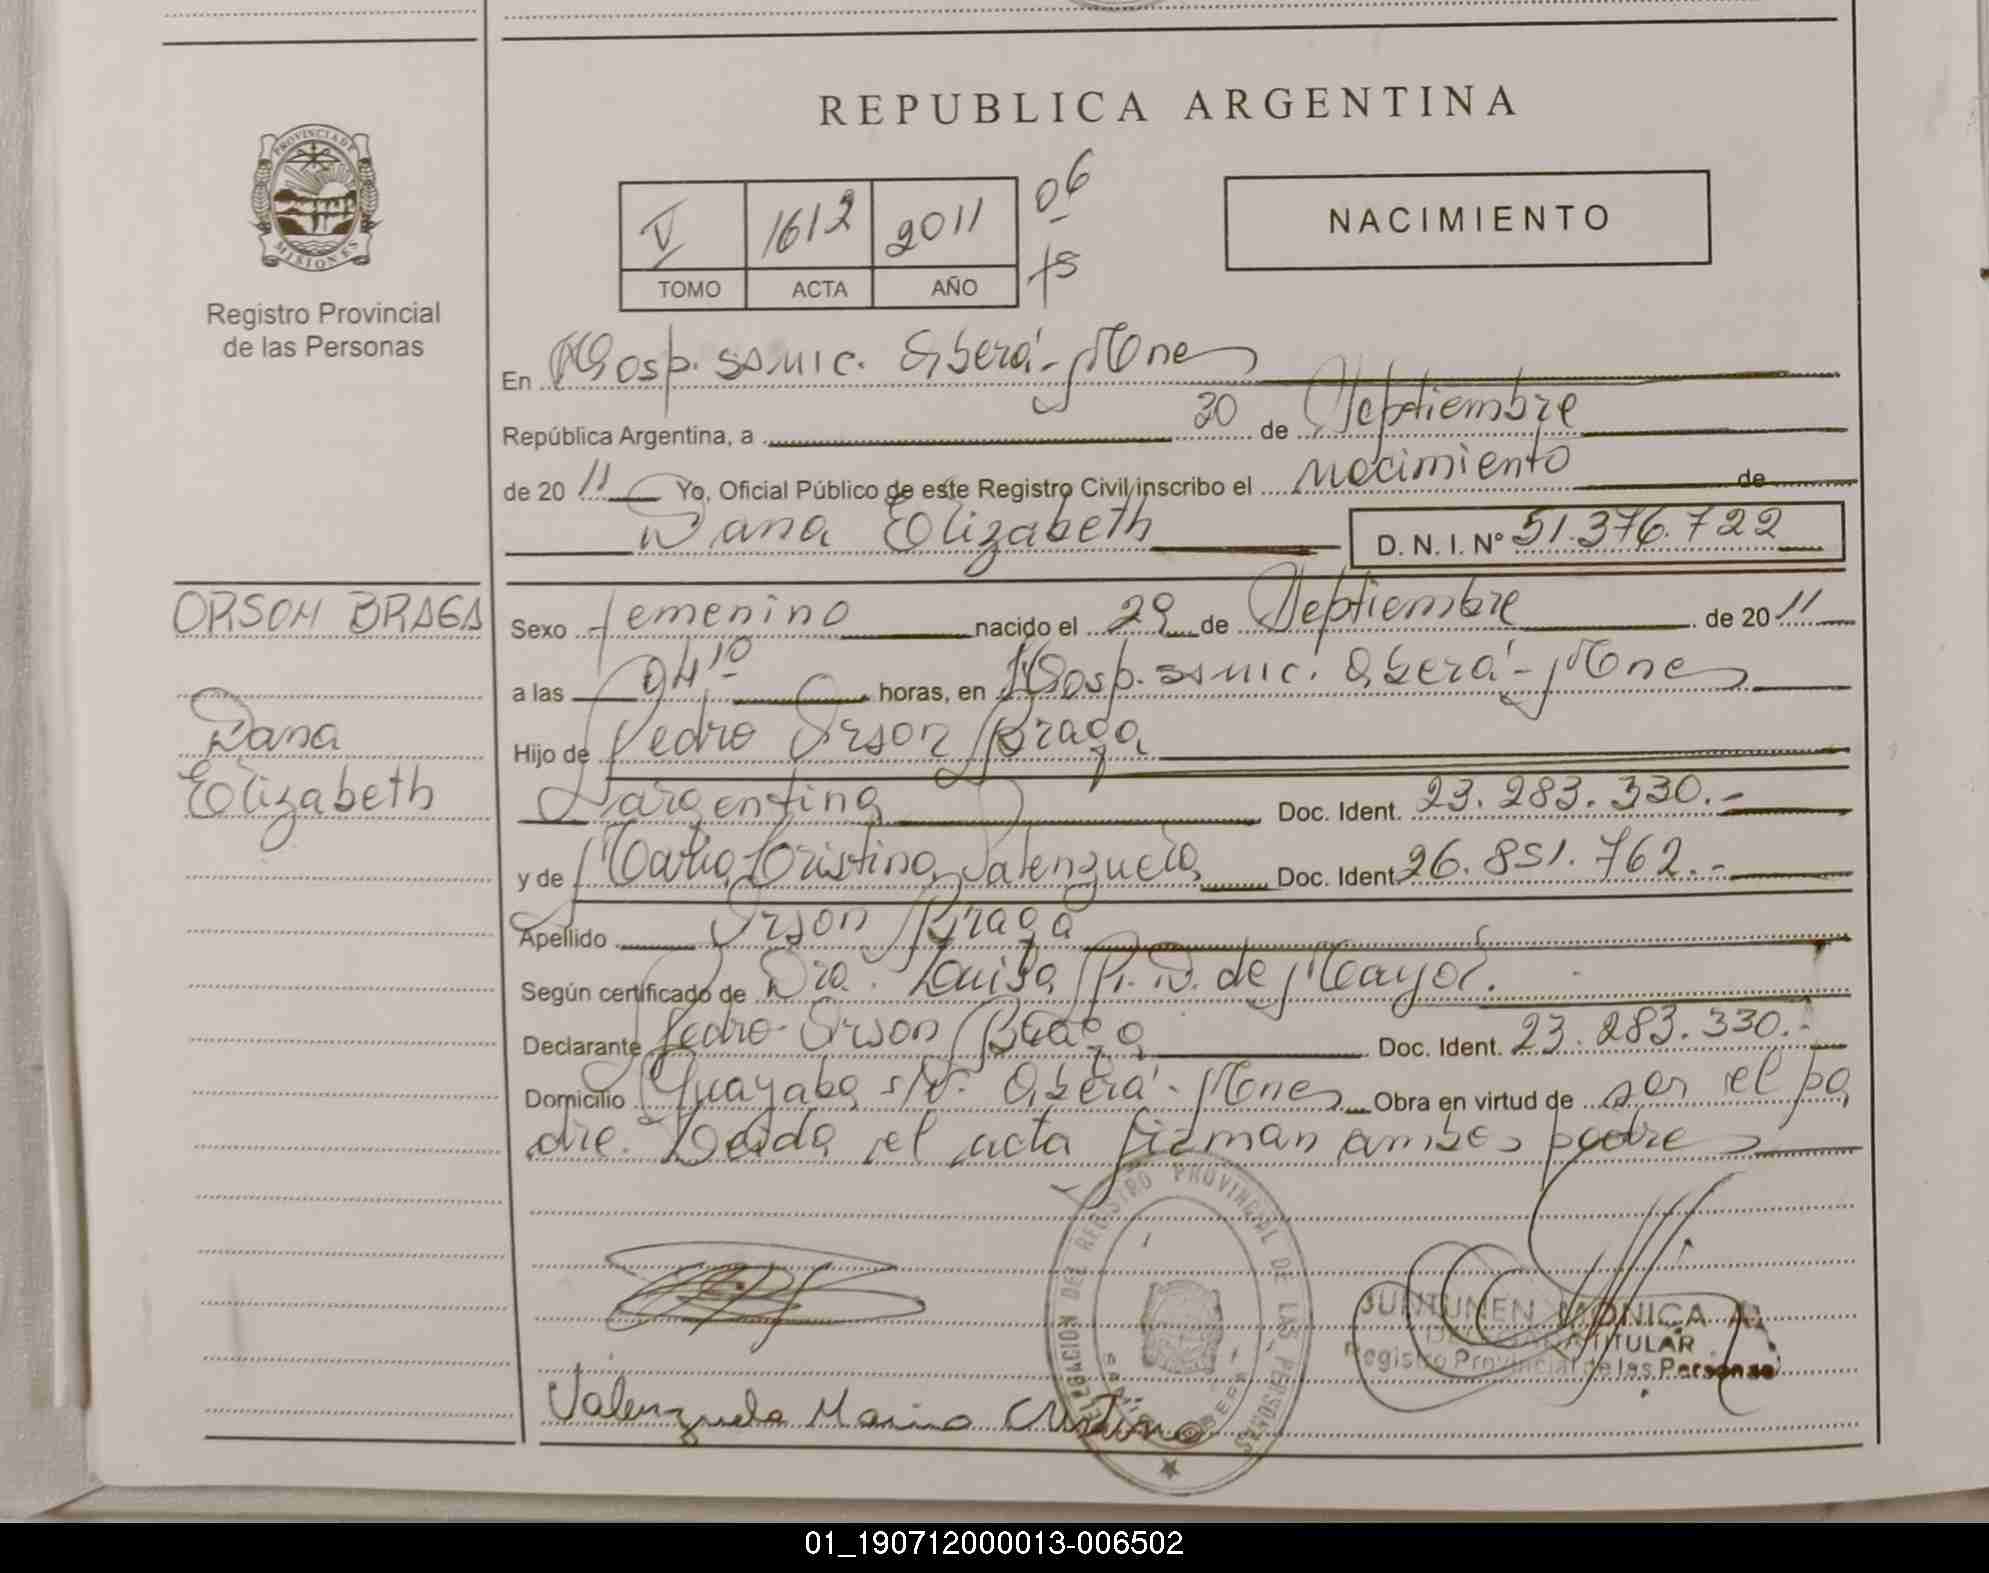 REPUBLICA ARGENTINA
PROVINCIA DE
MISIONES
Registro Provincial
de las Personas
V 1612 2011 06
TOMO ACTA AÑO
NACIMIENTO
En Hosp. SSMIC. Oberá - Mnes
República Argentina, a 30 de Septiembre
de 2011 Yo, Oficial Público de este Registro Civil inscribo el Nacimiento de
Dana Elizabeth D. N. I. Nº 51.376.722
ORSON BRAGA
Dana
Elizabeth
Sexo femenino nacido el 29 de Septiembre de 2011
a las 04,10 horas, en Hosp. SSMIC. Oberá - Mnes
Hijo de Pedro Orson Braga
argentino Doc. Ident. 23.283.330.-
y de María Cristina Valenzuela Doc. Ident. 26.851.762.-
Apellido Orson Braga
Según certificado de Dra. Luisa R. D. de Mayol.
Declarante Pedro Orson Braga Doc. Ident. 23.283.330.-
Domicilio Guayaba s/Nº Oberá - Mnes Obra en virtud de ser el pa
dre. Leída el acta firman ambos padres
DELEGACION DEL REGISTRO PROVINCIAL DE LAS PERSONAS
OBERA
JUNTUNEN MONICA A.
TITULAR
Registro Provincial de las Personas
Valenzuela Maria Cristina
01_190712000013-006502